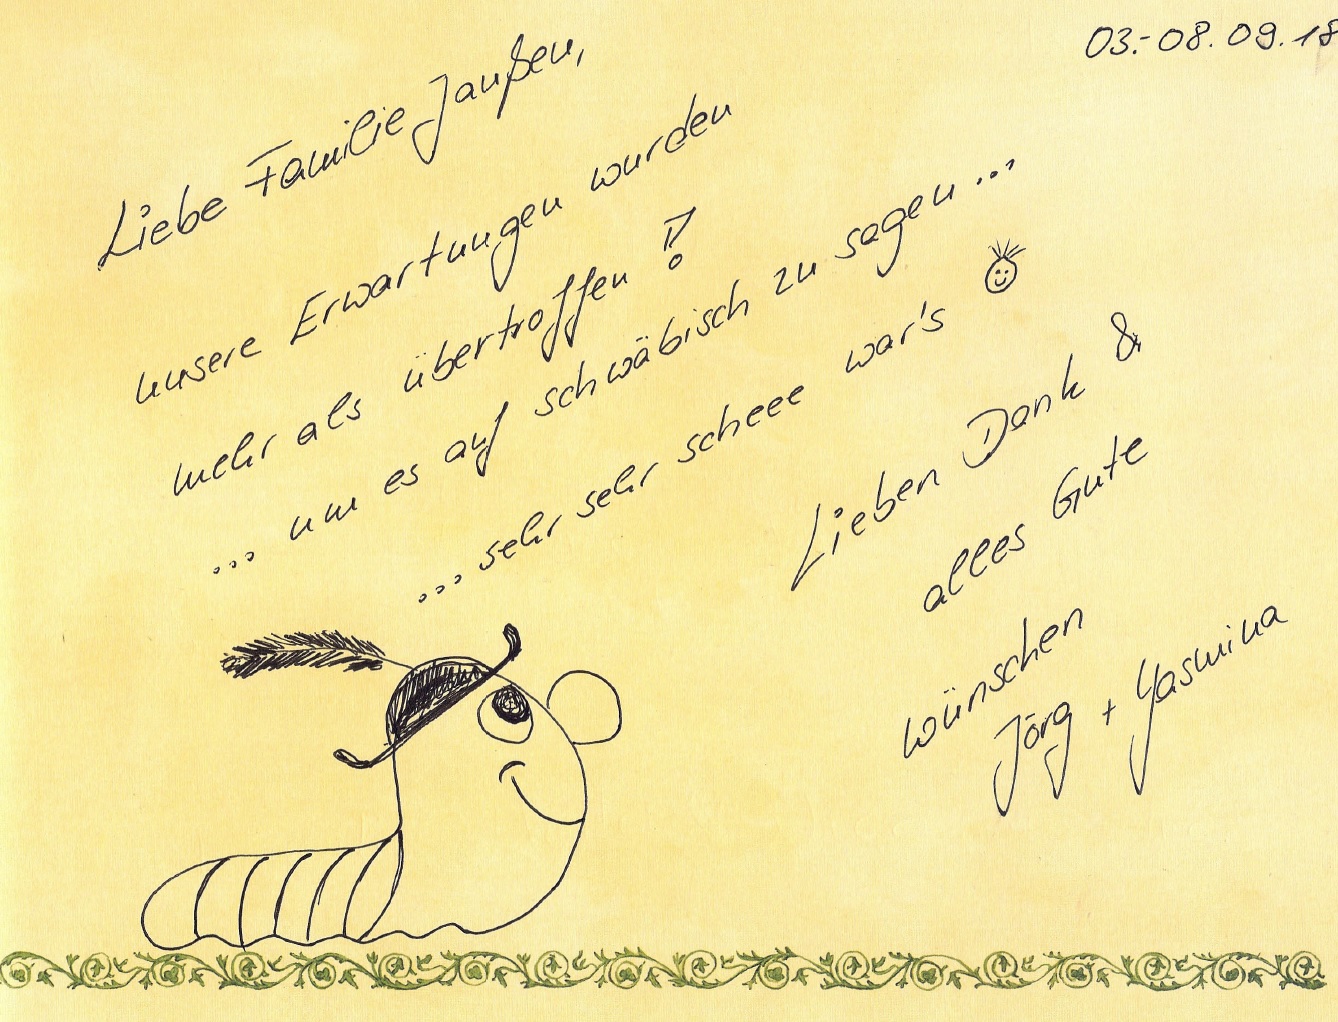 03.-08.09.18
Liebe Familie Janßen,
unsere Erwartungen wurden
mehr als übertroffen!
... um es auf schwäbisch zu sagen ...
... sehr sehr scheee war's
Lieben Dank &
alles Gute
wünschen
Jörg + Yasmina